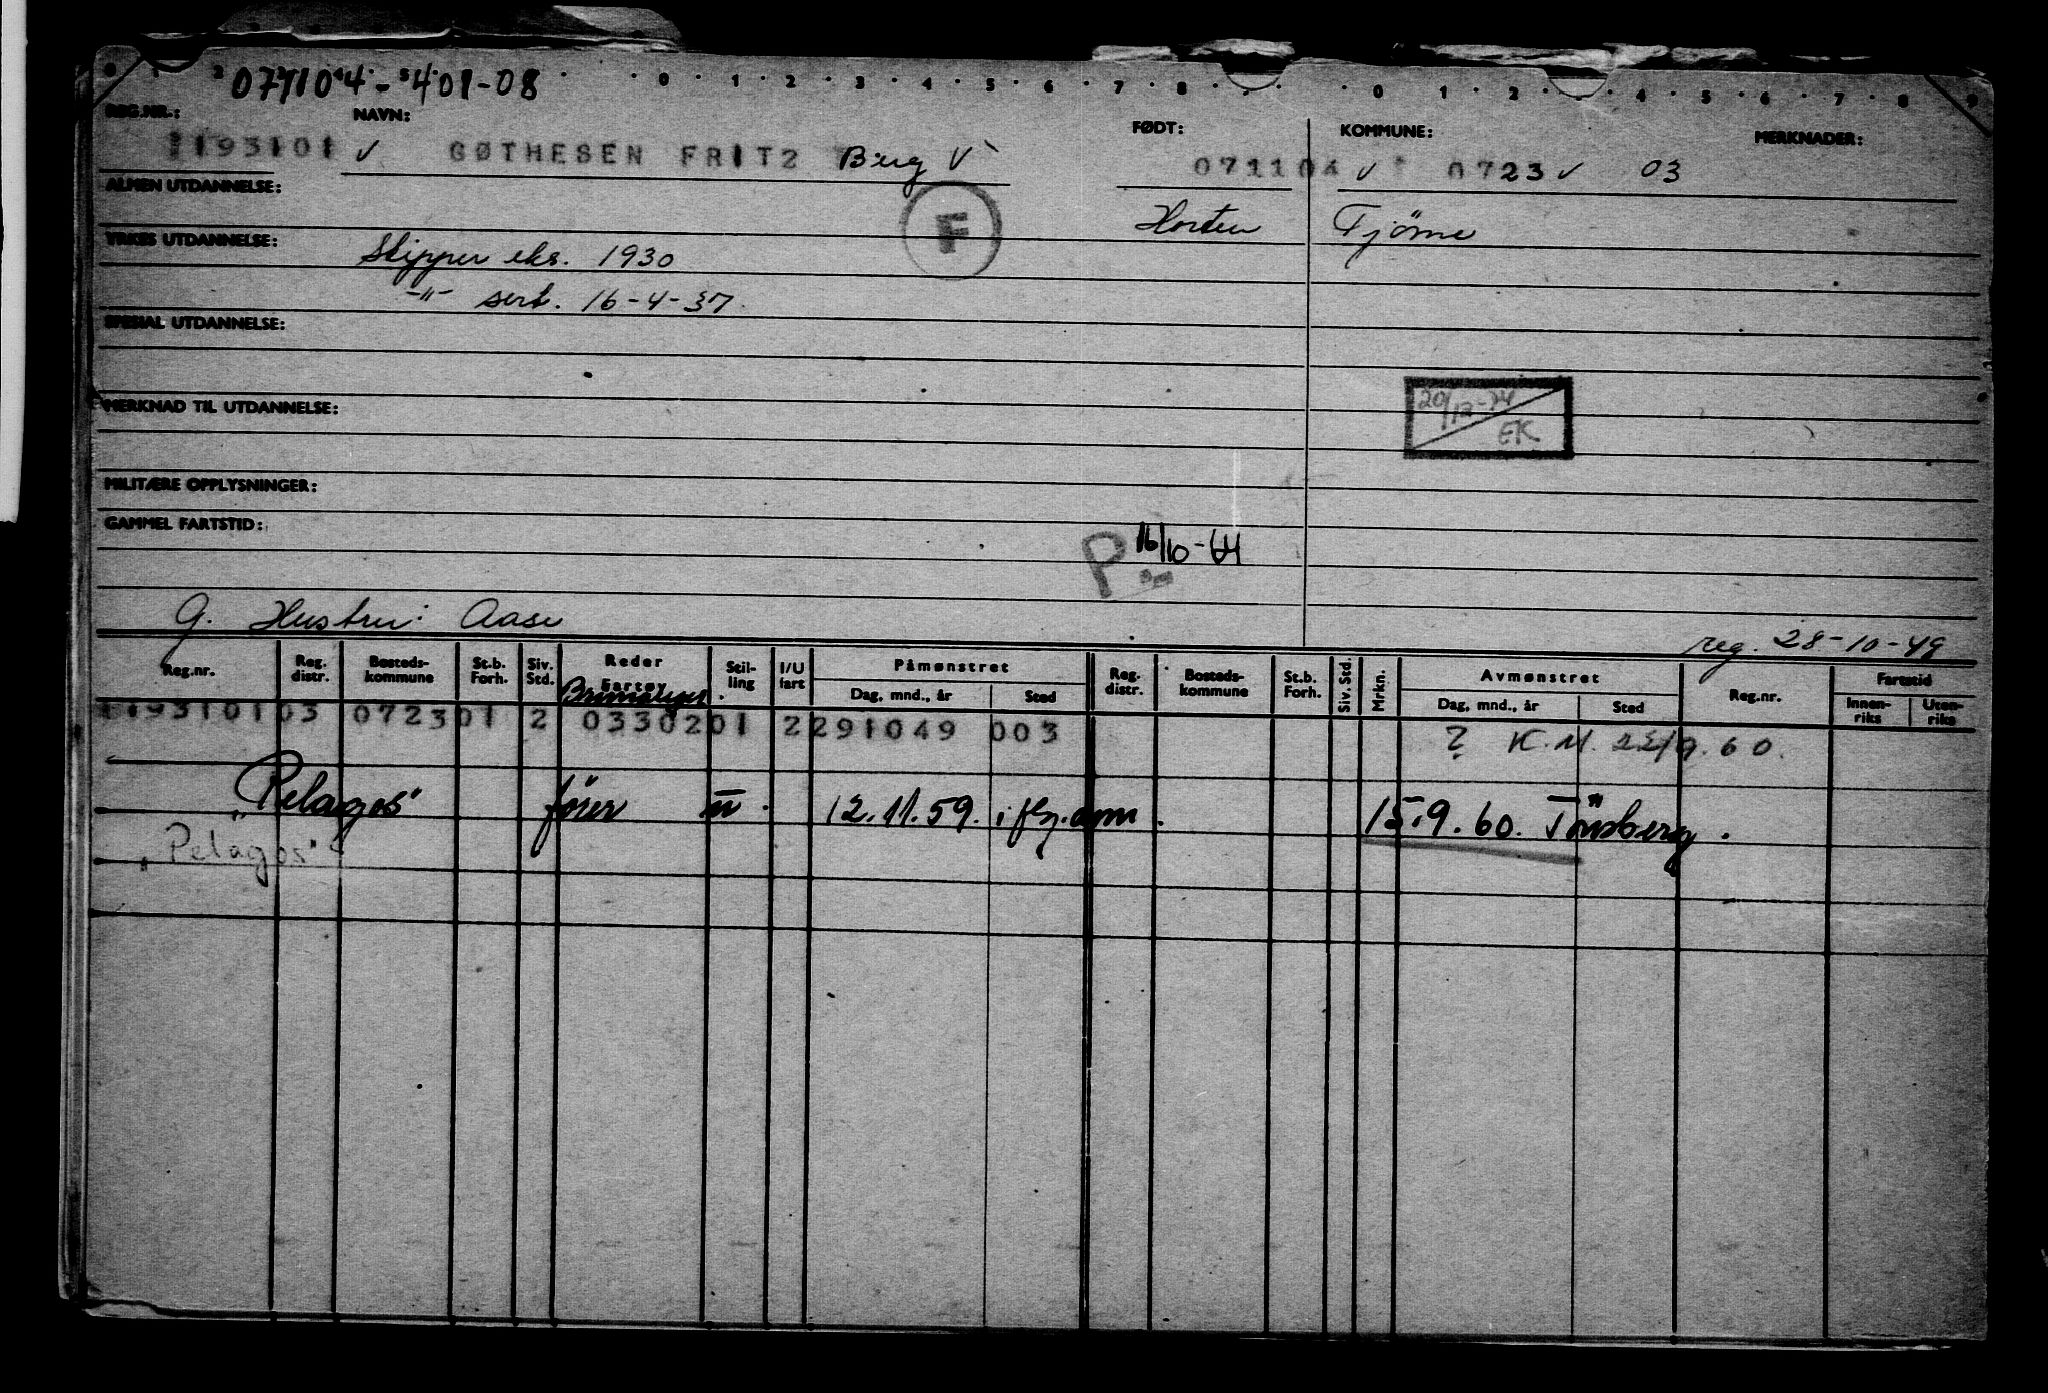 071104-401-08
0 1 2 3 4 5 6 7 8 0 1 2 3 4 5 6 7 8 9
REG.NR.: NAVN: FØDT: KOMMUNE: MERKNADER:
1193101 ✓ GØTHESEN FRITZ Birg V 071104 ✓ 0723 ✓ 03
ALMEN UTDANNELSE:
F Horten Tjöme
YRKES UTDANNELSE:
Skipper eks. 1930
-"- sert. 16-4-37.
SPESIAL UTDANNELSE:
MERKNAD TIL UTDANNELSE:
20/12-74
EK
MILITÆRE OPPLYSNINGER:
GAMMEL FARTSTID:
P 16/10-64
G. Hustru: Aase
reg. 28-10-49
Reg.nr. Reg. distr. Bosteds-kommune St.b. Forh. Siv. Std. Reder Fartøy Stil-ling I/U fart Påmønstret Dag, mnd., år Sted Reg. distr. Bosteds-kommune St.b. Forh. Siv. Std. Mrkn. Avmønstret Dag, mnd., år Sted Reg.nr. Fartstid Innen-riks Uten-riks
Brimanger
1193101 03 0723 01 2 03302 01 2 291049 003 ? K.M. 22/9.60.
"Pelagos" fører III. 12.11.59. i flg. avm. 15.9.60. Tönsberg.
"Pelagos"